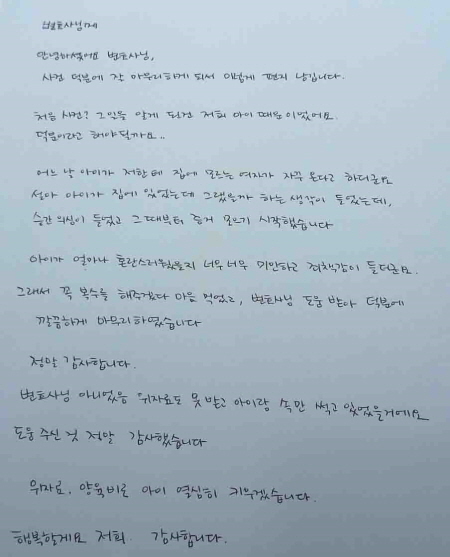 변호사님께
안녕하셨어요 변호사님,
사건 덕분에 잘 마무리하게 되서 이렇게 편지 남깁니다.
처음 사건? 그일을 알게 된건 저희 아이 때문이었어요.
덕분이라고 해야될까요..
어느 날 아이가 저한테 집에 모르는 여자가 자꾸 온다고 하더군요
설마 아이가 집에 있었는데 그랬을까 하는 생각이 들었는데,
순간 의심이 들었고 그때부터 증거 모으기 시작했습니다
아이가 얼마나 혼란스러웠을지 너무너무 미안하고 죄책감이 들더군요.
그래서 꼭 복수를 해주겠다 마음 먹었고, 변호사님 도움 받아 덕분에
깔끔하게 마무리하였습니다
정말 감사합니다.
변호사님 아니었음 위자료도 못 받고 아이랑 속만 썩고 있었을거에요
도움 주신 것 정말 감사했습니다
위자료, 양육비로 아이 열심히 키우겠습니다.
행복할게요 저희. 감사합니다.